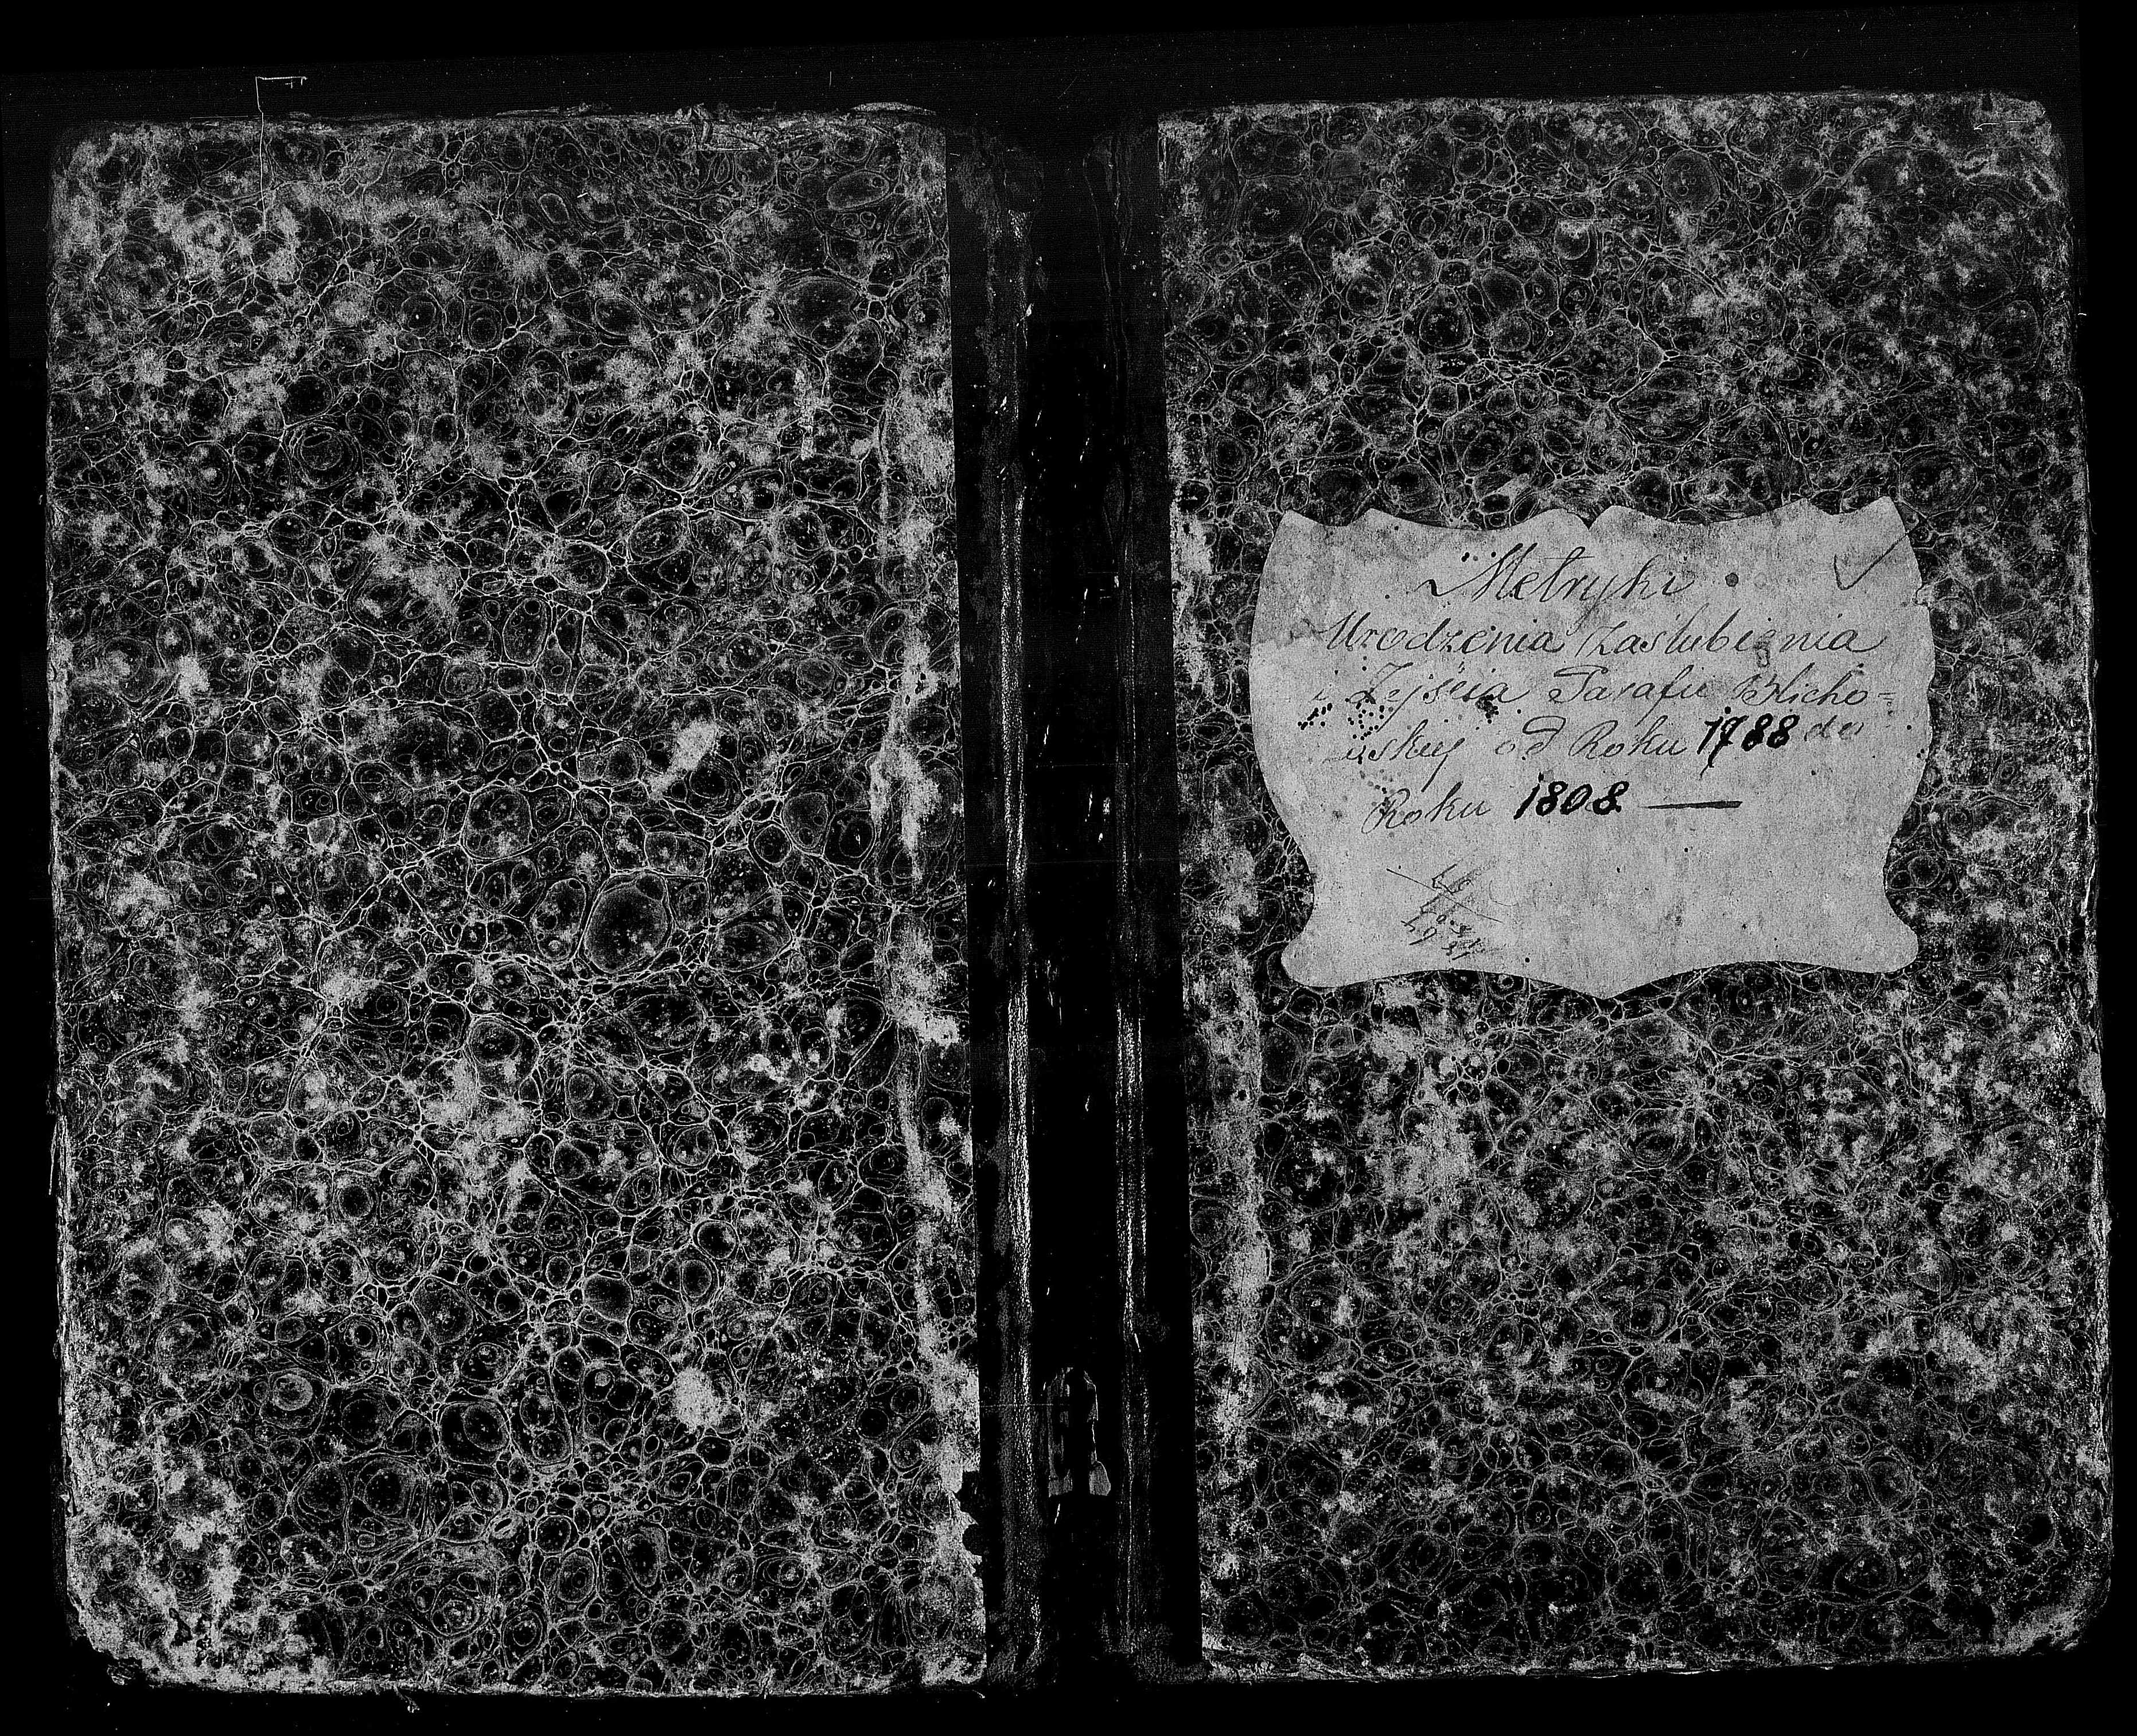 Metryki
Urodzenia Zaślubienia
i Zejścia Parafii Blicho=
wskiej od Roku 1788 do
Roku 1808.